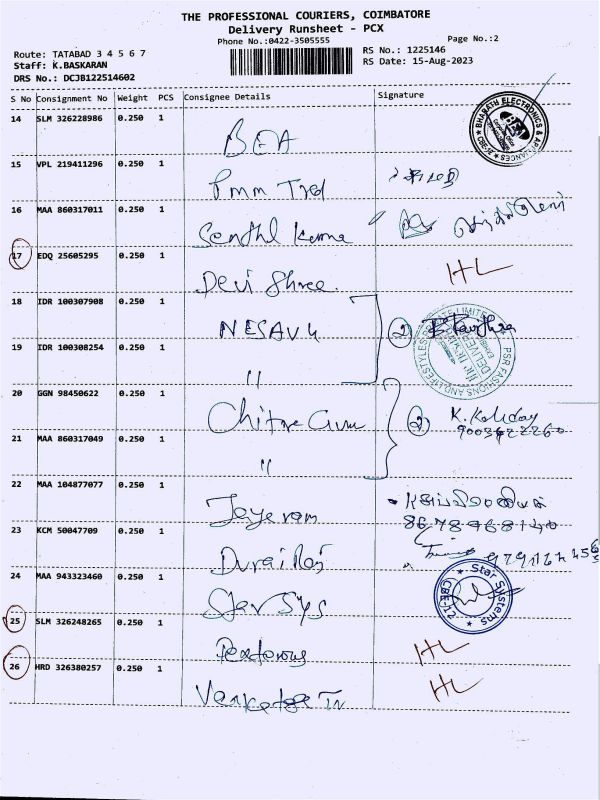 THE PROFESSIONAL COURIERS, COIMBATORE
Delivery Runsheet - PCX
Phone No.:0422-3505555
Page No.:2
Route: TATABAD 3 4 5 6 7
Staff: K.BASKARAN
DRS No.: DCJB122514602
RS No.: 1225146
RS Date: 15-Aug-2023
S No Consignment No Weight PCS Consignee Details Signature
14 SLM 326228986 0.250 1 BEA
BHARATH ELECTRONICS & APPLIANCES
15 VPL 219411296 0.250 1 Pmm Tred
16 MAA 860317011 0.250 1 Senthil Kuma
17 EDQ 25605295 0.250 1 Devi Shree. HL
18 IDR 100307908 0.250 1 NESAVU (2) B.Pavithra
PSR FASHIONS AND LIFESTYLES PRIVATE LIMITED
19 IDR 100308254 0.250 1 "
20 GGN 98450622 0.250 1 Chitra Gum (2) K.
21 MAA 860317049 0.250 1 "
22 MAA 104877077 0.250 1 Jayeram
8678968140
23 KCM 50047709 0.250 1 Durai Raj
24 MAA 943323460 0.250 1 Star Sys
Star Systems
CBE-12
25 SLM 326248265 0.250 1 HL
26 HRD 326380257 0.250 1 HL